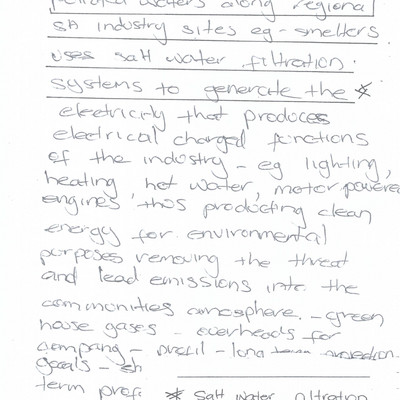 polluted waters along regional
SA industry sites eg - smelters
uses salt water filtration.
systems to generate the *
electricity that produces
electrical charged functions
of the industry - eg lighting,
heating, hot water, motor powered
engines thus producting clean
energy for environmental
purposes removing the threat
and lead emissions into the
communities atmosphere. - green
house gases - overheads for
company - profit - long term
goals - sh
term prof * salt water filtration